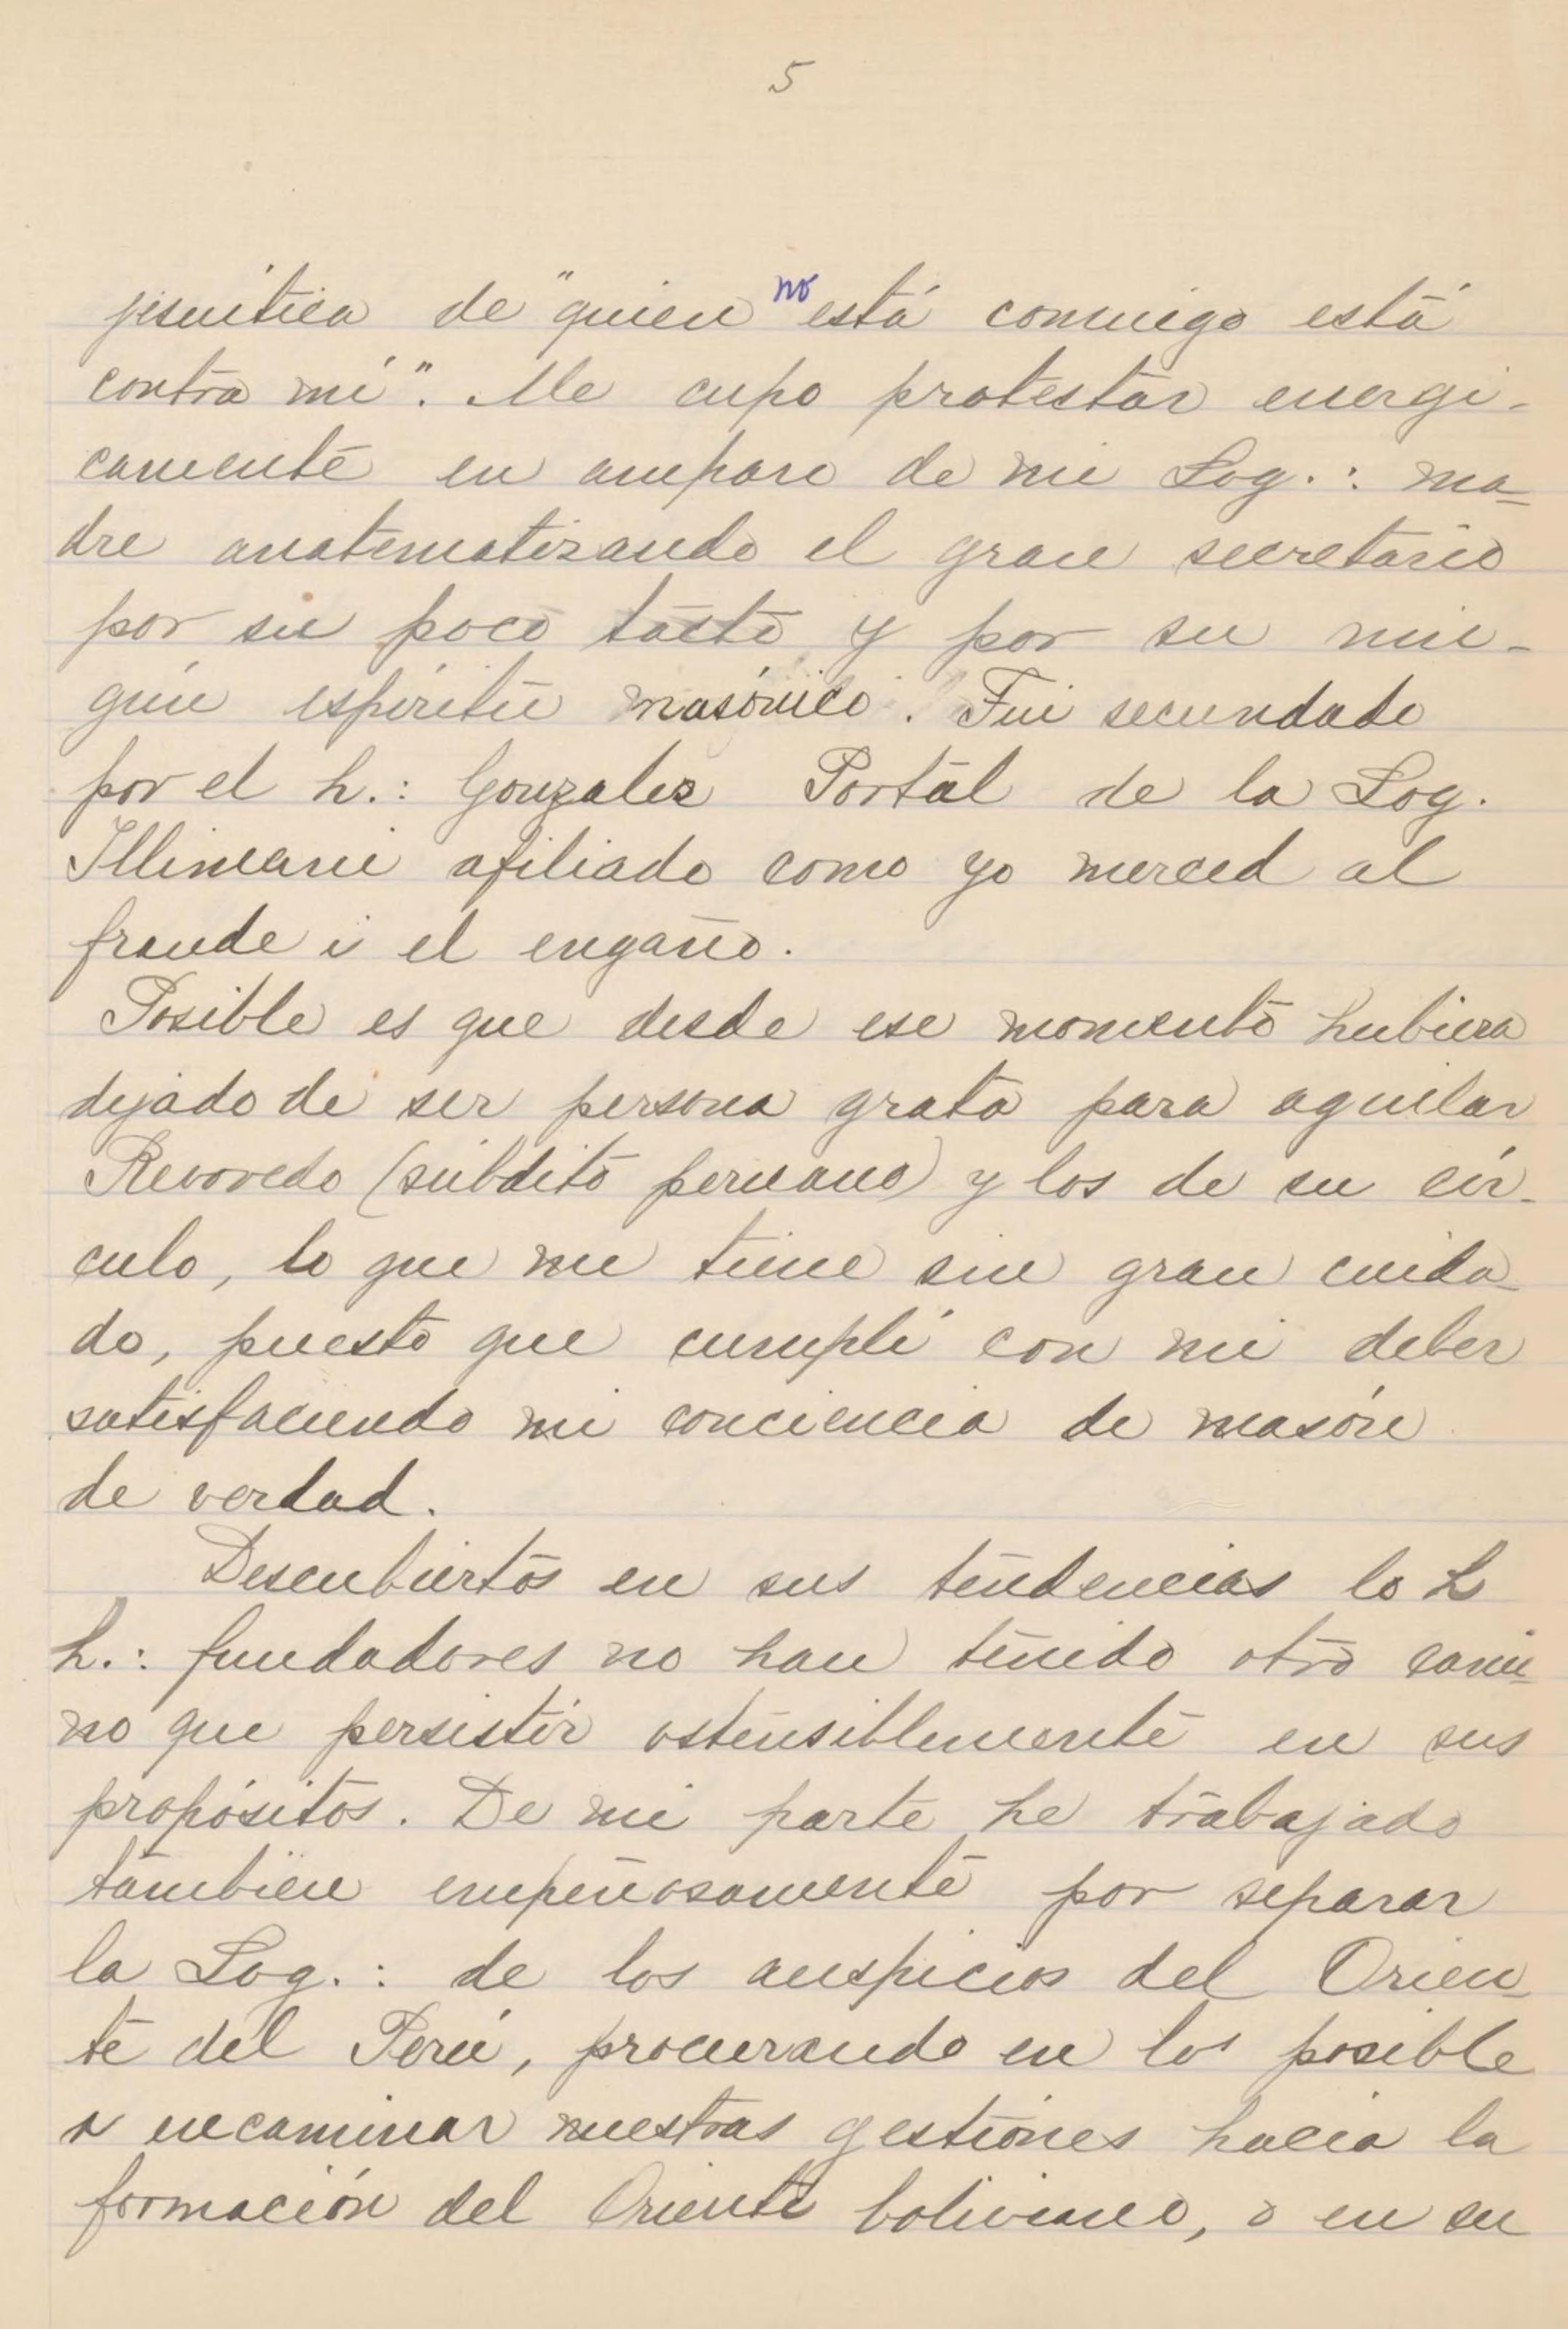 5
jesuítica de "quien no está conmigo está
contra mí". Me cupo protestar energi-
camente en amparo de mi Log.: ma-
dre anatematizando el gran secretario
por su poco tacto y por su nin-
gún espíritu masónico. Fui secundado
por el h.: Gonzales Portal de la Log.
Illimani afiliado como yo merced al
fraude i el engaño.
Posible es que desde ese momento hubiera
dejado de ser persona grata para aguilar
Revoredo (súbdito peruano) y los de su cír-
culo, lo que me tiene sin gran cuida-
do, puesto que cumplí con mi deber
satisfaciendo mi conciencia de masón
de verdad.
Descubiertos en sus tendencias lo h
h.: fundadores no han tenido otro cami-
no que persistir ostensiblemente en sus
propósitos. De mi parte he trabajado
tambien empeñosamente por separar
la Log.: de los auspicios del Orien-
te del Perú, procurando en los posible
a encaminar nuestras gestiones hacia la
formación del Oriente boliviano, o en su